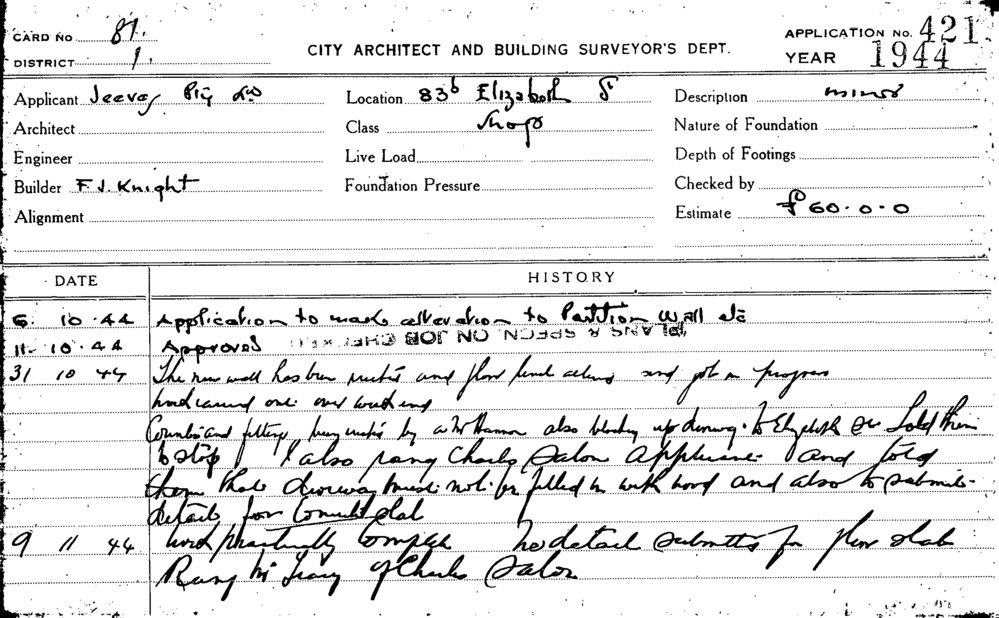 CARD NO 81.
DISTRICT 1.
CITY ARCHITECT AND BUILDING SURVEYOR'S DEPT.
APPLICATION No. 421
YEAR 1944
Applicant Jeeves Pty Ltd
Location 83b Elizabeth St
Description minor
Architect
Class Shops
Nature of Foundation
Engineer
Live Load
Depth of Footings
Builder F.J. Knight
Foundation Pressure
Checked by
Alignment
Estimate £60.0.0
DATE HISTORY
6. 10.44 Application to make alteration to Partition Wall etc
11. 10.44 Approved PLANS & SPECN ON JOB
31 10 44 The new wall has been and floor level and job in progress
work carried out over weekend
Counter and fittings being by a Mr also blocking up doorway to Elizabeth St. Told them
to stop I also rang Charles Salon and told
them that doorway must not be filled in with wood and also to submit
details for slab
9 11 44 Work practically complete No detail submitted for floor slab
Rang Mr of Charles Salon